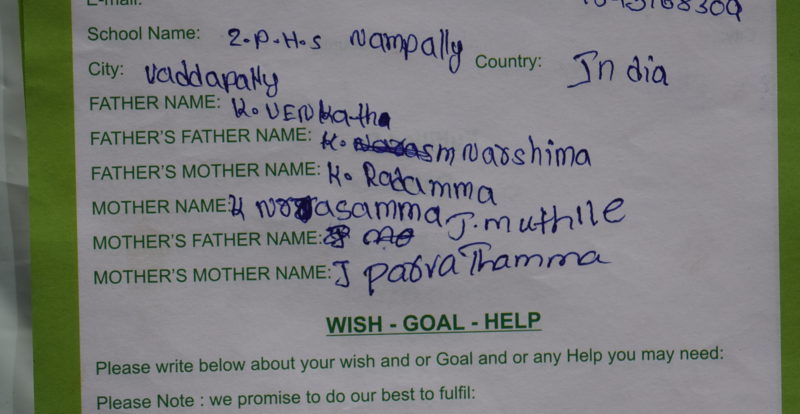 E-mail:
School Name: Z.P.H.S Nampally Country: India
City: Vaddapally
FATHER NAME: K. VENKatha
FATHER'S FATHER NAME: K. Narshima
FATHER'S MOTHER NAME: K. Radamma
MOTHER NAME: K Narasamma
MOTHER'S FATHER NAME: J. muthlle
MOTHER'S MOTHER NAME: J parvathamma
WISH - GOAL - HELP
Please write below about your wish and or Goal and or any Help you may need:
Please Note : we promise to do our best to fulfil: